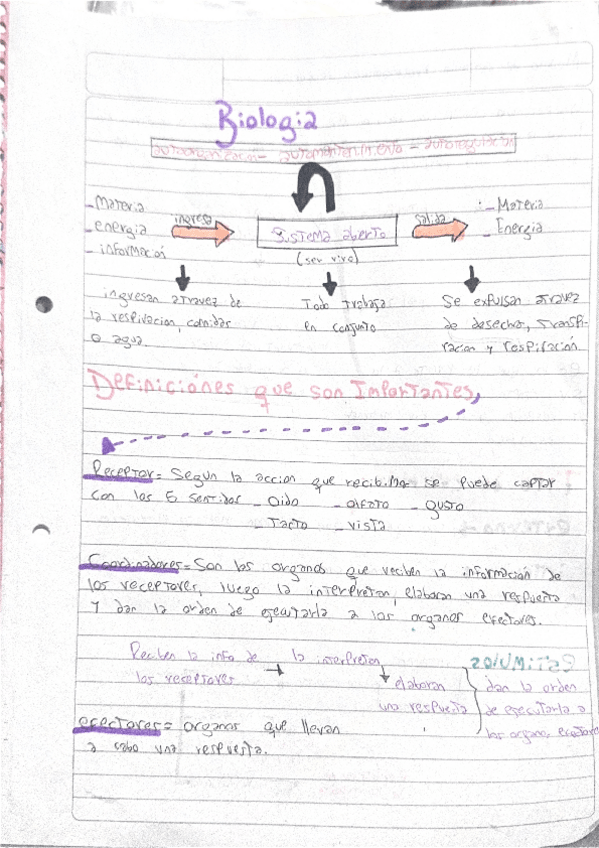 Biologia
autoorganizacion - automantenimiento - autoregulacion
- Materia
- energia
- informació
ingresa
Sistema abierto
(ser vivo)
Salida
- Materia
- Energia
ingresan atravez de
la respiracion, comidas
o agua
Todo trabaja
en conjunto
Se expulsan atravez
de desechos, transpi-
racion y respiración
Definiciónes que son Importantes,
Receptor= Segun la accion que recibimos se puede captar
con los 5 sentidos - Oido - olfato - gusto
- Tacto - vista
Coordinadores= Son los organos que reciben la información de
los receptores, luego la interpretan, elaboran una respuesta
y dan la orden de ejecutarla a los organos efectores.
Reciben la info de
los receptores
la interpretan
elaboran
una respuesta
dan la orden
de ejecutarla a
los organos, efectores
efectores= organos que llevan
a cabo una respuesta.